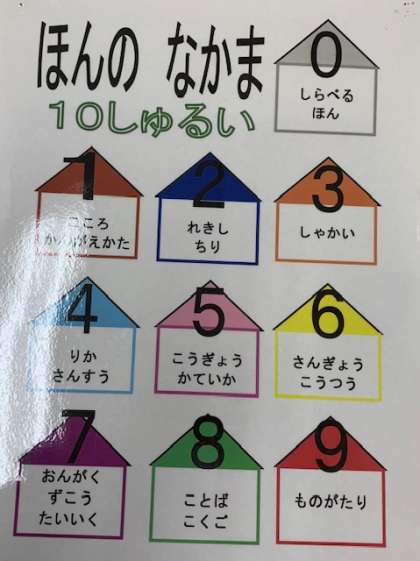 ほんの なかま
10しゅるい
0
しらべる
ほん
1
こころ
かんがえかた
2
れきし
ちり
3
しゃかい
4
りか
さんすう
5
こうぎょう
かていか
6
さんぎょう
こうつう
7
おんがく
ずこう
たいいく
8
ことば
こくご
9
ものがたり